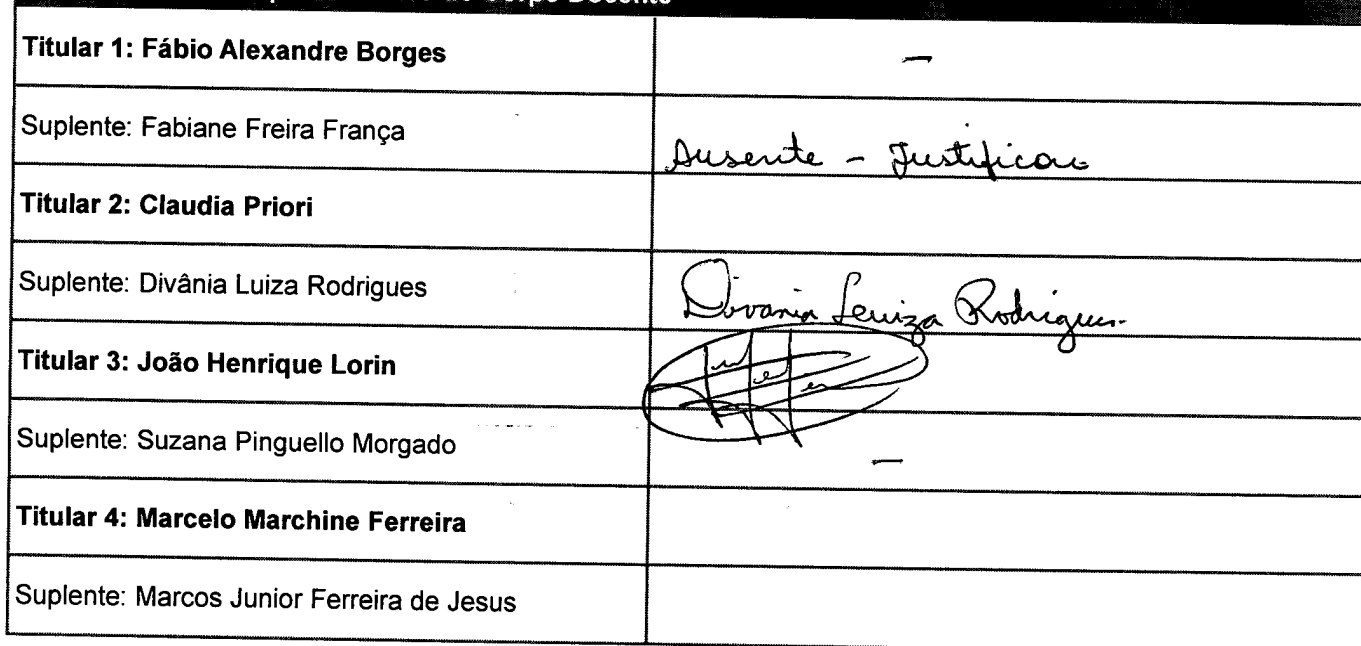 Corpo Docente
Titular 1: Fábio Alexandre Borges
–
Suplente: Fabiane Freira França
Ausente – Justificou
Titular 2: Claudia Priori
Suplente: Divânia Luiza Rodrigues
Divania Luiza Rodrigues
Titular 3: João Henrique Lorin
Suplente: Suzana Pinguello Morgado
–
Titular 4: Marcelo Marchine Ferreira
Suplente: Marcos Junior Ferreira de Jesus